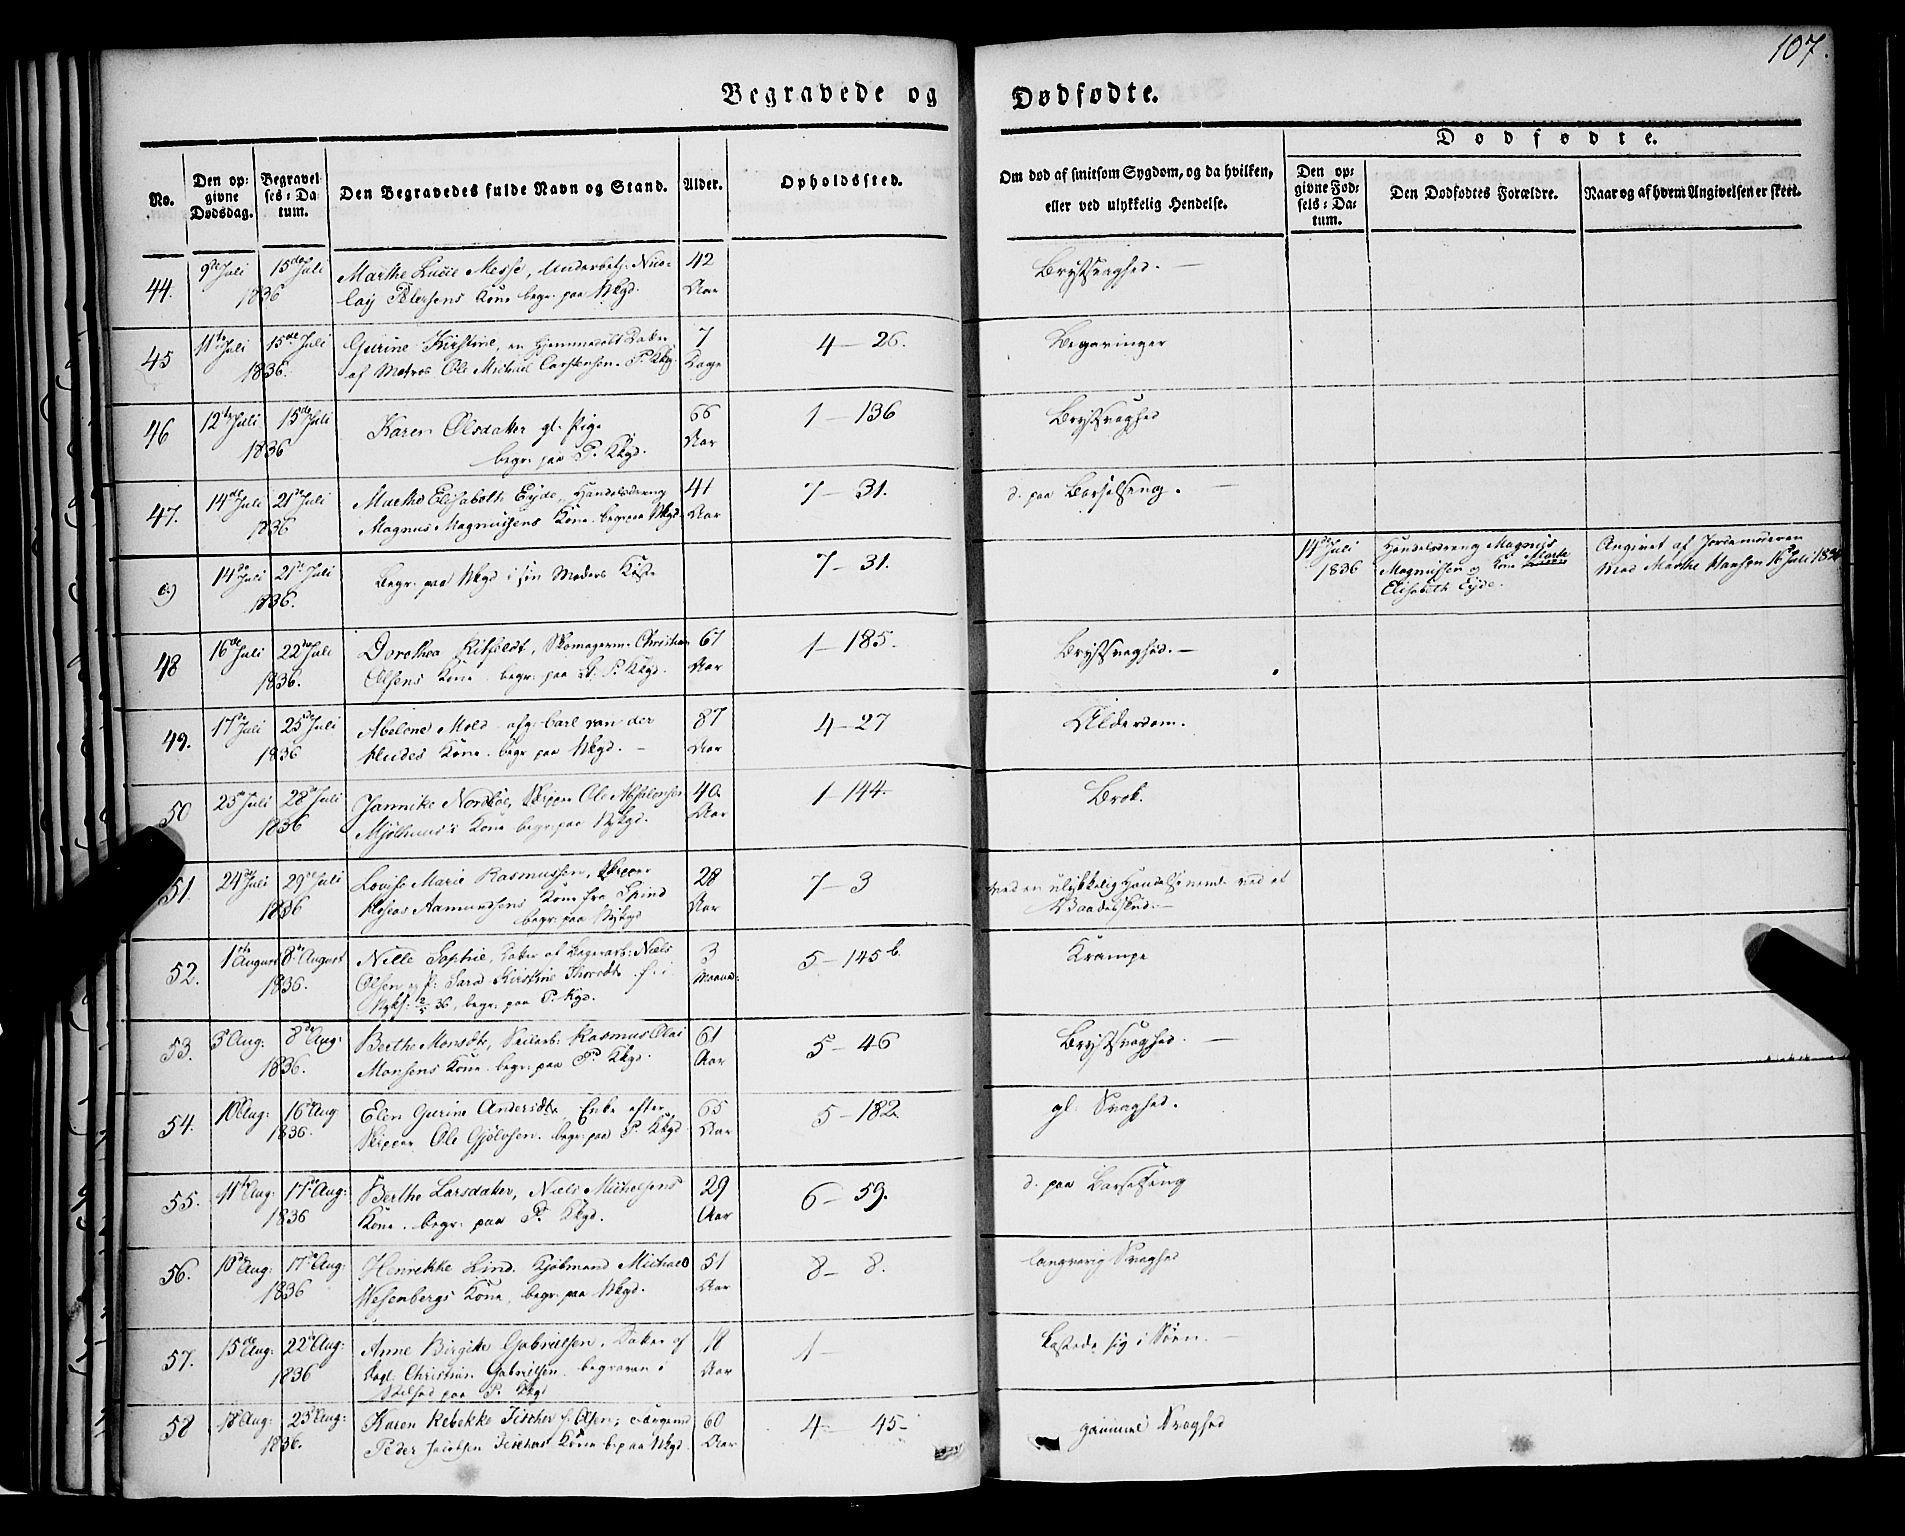 107.
Begravede og Dødfødte.
No.
Den opgivne Dødsdag.
Begravelses-Datum.
Den Begravedes fulde Navn og Stand.
Alder.
Opholdssted.
Om død af smitsom Sygdom, og da hvilken,
eller ved ulykkelig Hendelse.
Dødfødte.
Den opgivne Fødsels-Datum.
Den Dødfødtes Forældre.
Naar og af hvem Angivelsen er skeet.
44. 9de Juli 15de Juli Marthe Lucie Messe, Underbetj: Nico- 42 Brystsvaghed. —
1836 lay Petersens Kone begr: paa Nkgd. Aar
45 11te Juli 15de Juli Gurine Kirstine, en Hjemmedøbt Datter 7 4 — 26. Begavinger
1836. af Matros Ole Michael Carstensen. P. Kkg. Dage
46 12te Juli 15de Juli Karen Olsdatter gl. Pige 66 1 — 136 Brystsvaghed
1836 begr: paa P. Kkgd. Aar
47. 14de Juli 21de Juli Marthe Elisabeth Eyde, Handelsdreng 41 7 — 31. d. paa Barselseng. —
1836 Magnus Magnussens Kone. begr: paa Nkgd. Aar
og 14de Juli 21de Juli Begr. paa Nkgd i sin Moders Kiste 7 — 31. 14de Juli Handelsdreng Magnus Angivet af Jordemoderen
1836. 1836 Magnussen og Kone Marte Mad Marthe Hansen 16de Juli 1836
Elisabeth Eyde.
48 16de Juli 22de Juli Dorothea Kitfeldt, Skomagerm. Christian 67 1 — 185. Brystsvaghed. —
1836. Olsens Kone. begr: paa P. Kkgd. Aar
49. 17de Juli 25de Juli Abelone Mold afg: Carl van der 87 4 — 27 Alderdom.
1836 Hudes Kone. begr paa Nkgd. — Aar
50 25de Juli 28de Juli Jannike Nordbøe, Skipper Ole Absalonsen 40. 1 — 144. Brok.
1836 Kone begr: paa Nykgd. Aar
51. 24de Juli 29de Juli Lovise Marie Rasmussen, Skipper 28 7 — 3 ved en ulykkelig Hendelse nemlig ved et
1836 Aamundsens Kone fra Spind Aar Vaadeskud. —
begr: paa Nykgd
52. 1ste August 8de August Nille Sophie, Datter af Niels 3 5 — 145 b. Krampe
1836. Olsen og P: Sara Kirstine f. i Maaned:
36, begr: paa P. Kgd.
53. 3 Aug: 8de Aug: Berthe Monsdtr, Rasmus Olai 61 5 — 46 Brystsvaghed. —
1836. Monsens Kone. begr: paa P. Kkgd. Aar
54. 10de Aug: 16de Aug Elen Gurine Andersdtr, Enke efter 65 5 — 182. gl. Svaghed.
1836. Skipper Ole Gjølvsen. begr: paa P. Kkgd Aar
55. 11te Aug: 17de Aug: Berthe Larsdatter, Niels Michelsens 29 6 — 59. d. paa Barselseng
1836 Kone. begr: paa P. Kkgd. Aar
56. 10de Aug: 17de Aug: Henrikke Lind. Kjøbmand Michael 51 8 — 8. langvarig Svaghed
1836 Wesenbergs Kone, begr: paa Nkgd. Aar
57. 15de Aug: 22de Aug: Anne Birgitte Gabrielsen, Datter af 18 1 — kastede sig i Søen. —
1836 Christian Gabrielsen. begraven i Aar
Stilhed paa P. Kkgd
58 18de Aug: 25de Aug: Karen Rebekke Fischer f. Olsen, 60 4 — 45 — gammel Svaghed
1836. Peder Jacobsen Fischers Kone b. paa Nkgd. Aar